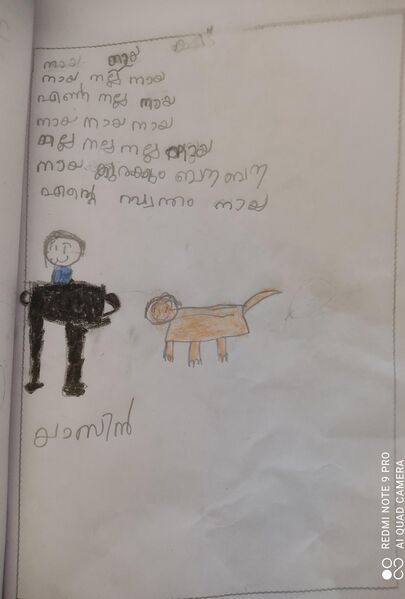 നായ നായ
നായ നല്ല നായ
എൻ്റെ നല്ല നായ
നായ നായ നായ
നല്ല നല്ല നല്ല നായ
നായ കുരക്കും ബൗ ബൗ
എൻ്റെ സ്വന്തം നായ
യാസിൻ
REDMI NOTE 9 PRO
AI QUAD CAMERA